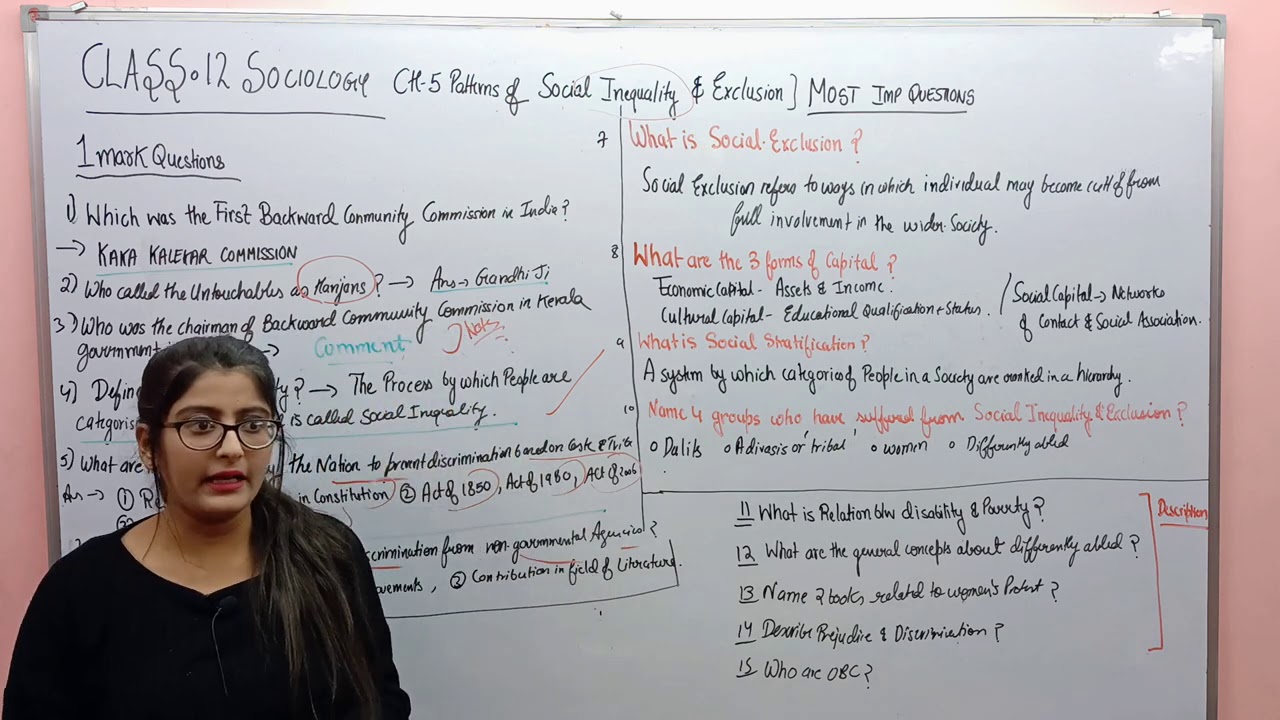 CLASS.12 SOCIOLOGY CH-5 Patterns of Social Inequality & Exclusion] MOST IMP QUESTIONS
1 mark Questions
1) Which was the First Backward Community Commission in India?
→ KAKA KALEKAR COMMISSION
2) Who called the Untouchables as Harijans? → Ans → Gandhi Ji
3) Who was the chairman of Backward Community Commission in Kerala
government → Comment Note
4) Define ? → The Process by which People are
categoris is called Social Inequality.
5) What are the Nation to prevent discrimination based on Caste & Tribe
Ans → ① in Constitution ② Act of 1850, Act of 1980, Act of 2006
discrimination from non-governmental Agencies?
ovements, ② Contribution in field of Literature.
7 What is Social Exclusion?
Social Exclusion refers to ways in which individual may become cutt off from
full involvement in the wider Society.
8 What are the 3 forms of Capital?
Economic Capital - Assets & Income.
Cultural Capital - Educational Qualification & Status.
Social Capital → Networks
of Contact & Social Association.
9 What is Social Stratification?
A system by which categories of People in a Society are ranked in a hierarchy.
10 Name 4 groups who have suffered from Social Inequality & Exclusion?
o Dalits o Adivasis or tribal o women o Differently abled
11 What is Relation b/w disability & Poverty?
12 What are the general concepts about differently abled?
13 Name 2 books related to women's Protest?
14 Describe Prejudice & Discrimination?
15 Who are OBC?
Description